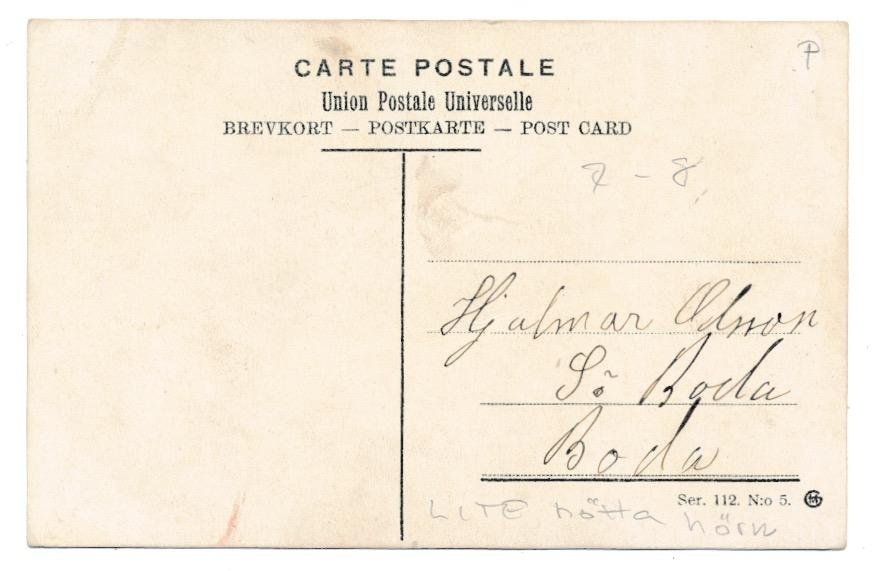 P
CARTE POSTALE
Union Postale Universelle
BREVKORT — POSTKARTE — POST CARD
7 - 8
Hjalmar Olsson
Sö Boda
Boda
Ser. 112. N:o 5.
LITE nötta hörn